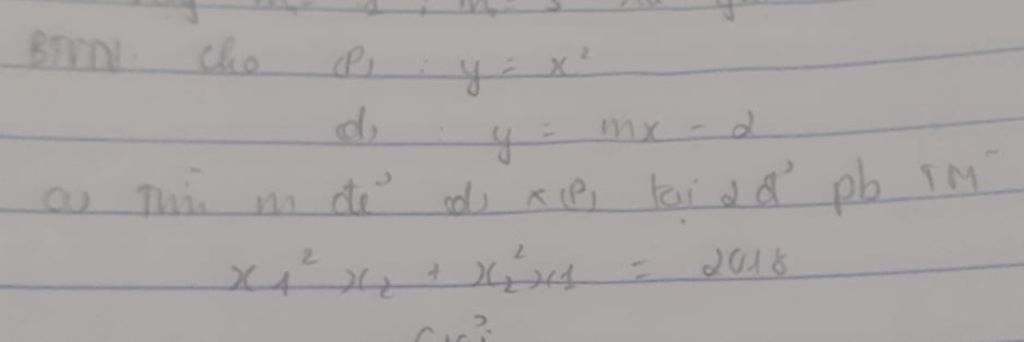 BTVN. Cho (P) : y = x²
d) : y = mx - 2
a) Tìm m để d) x (P) tại 2 đ' pb TM
x1² x2 + x2² x1 = 2018
Giải